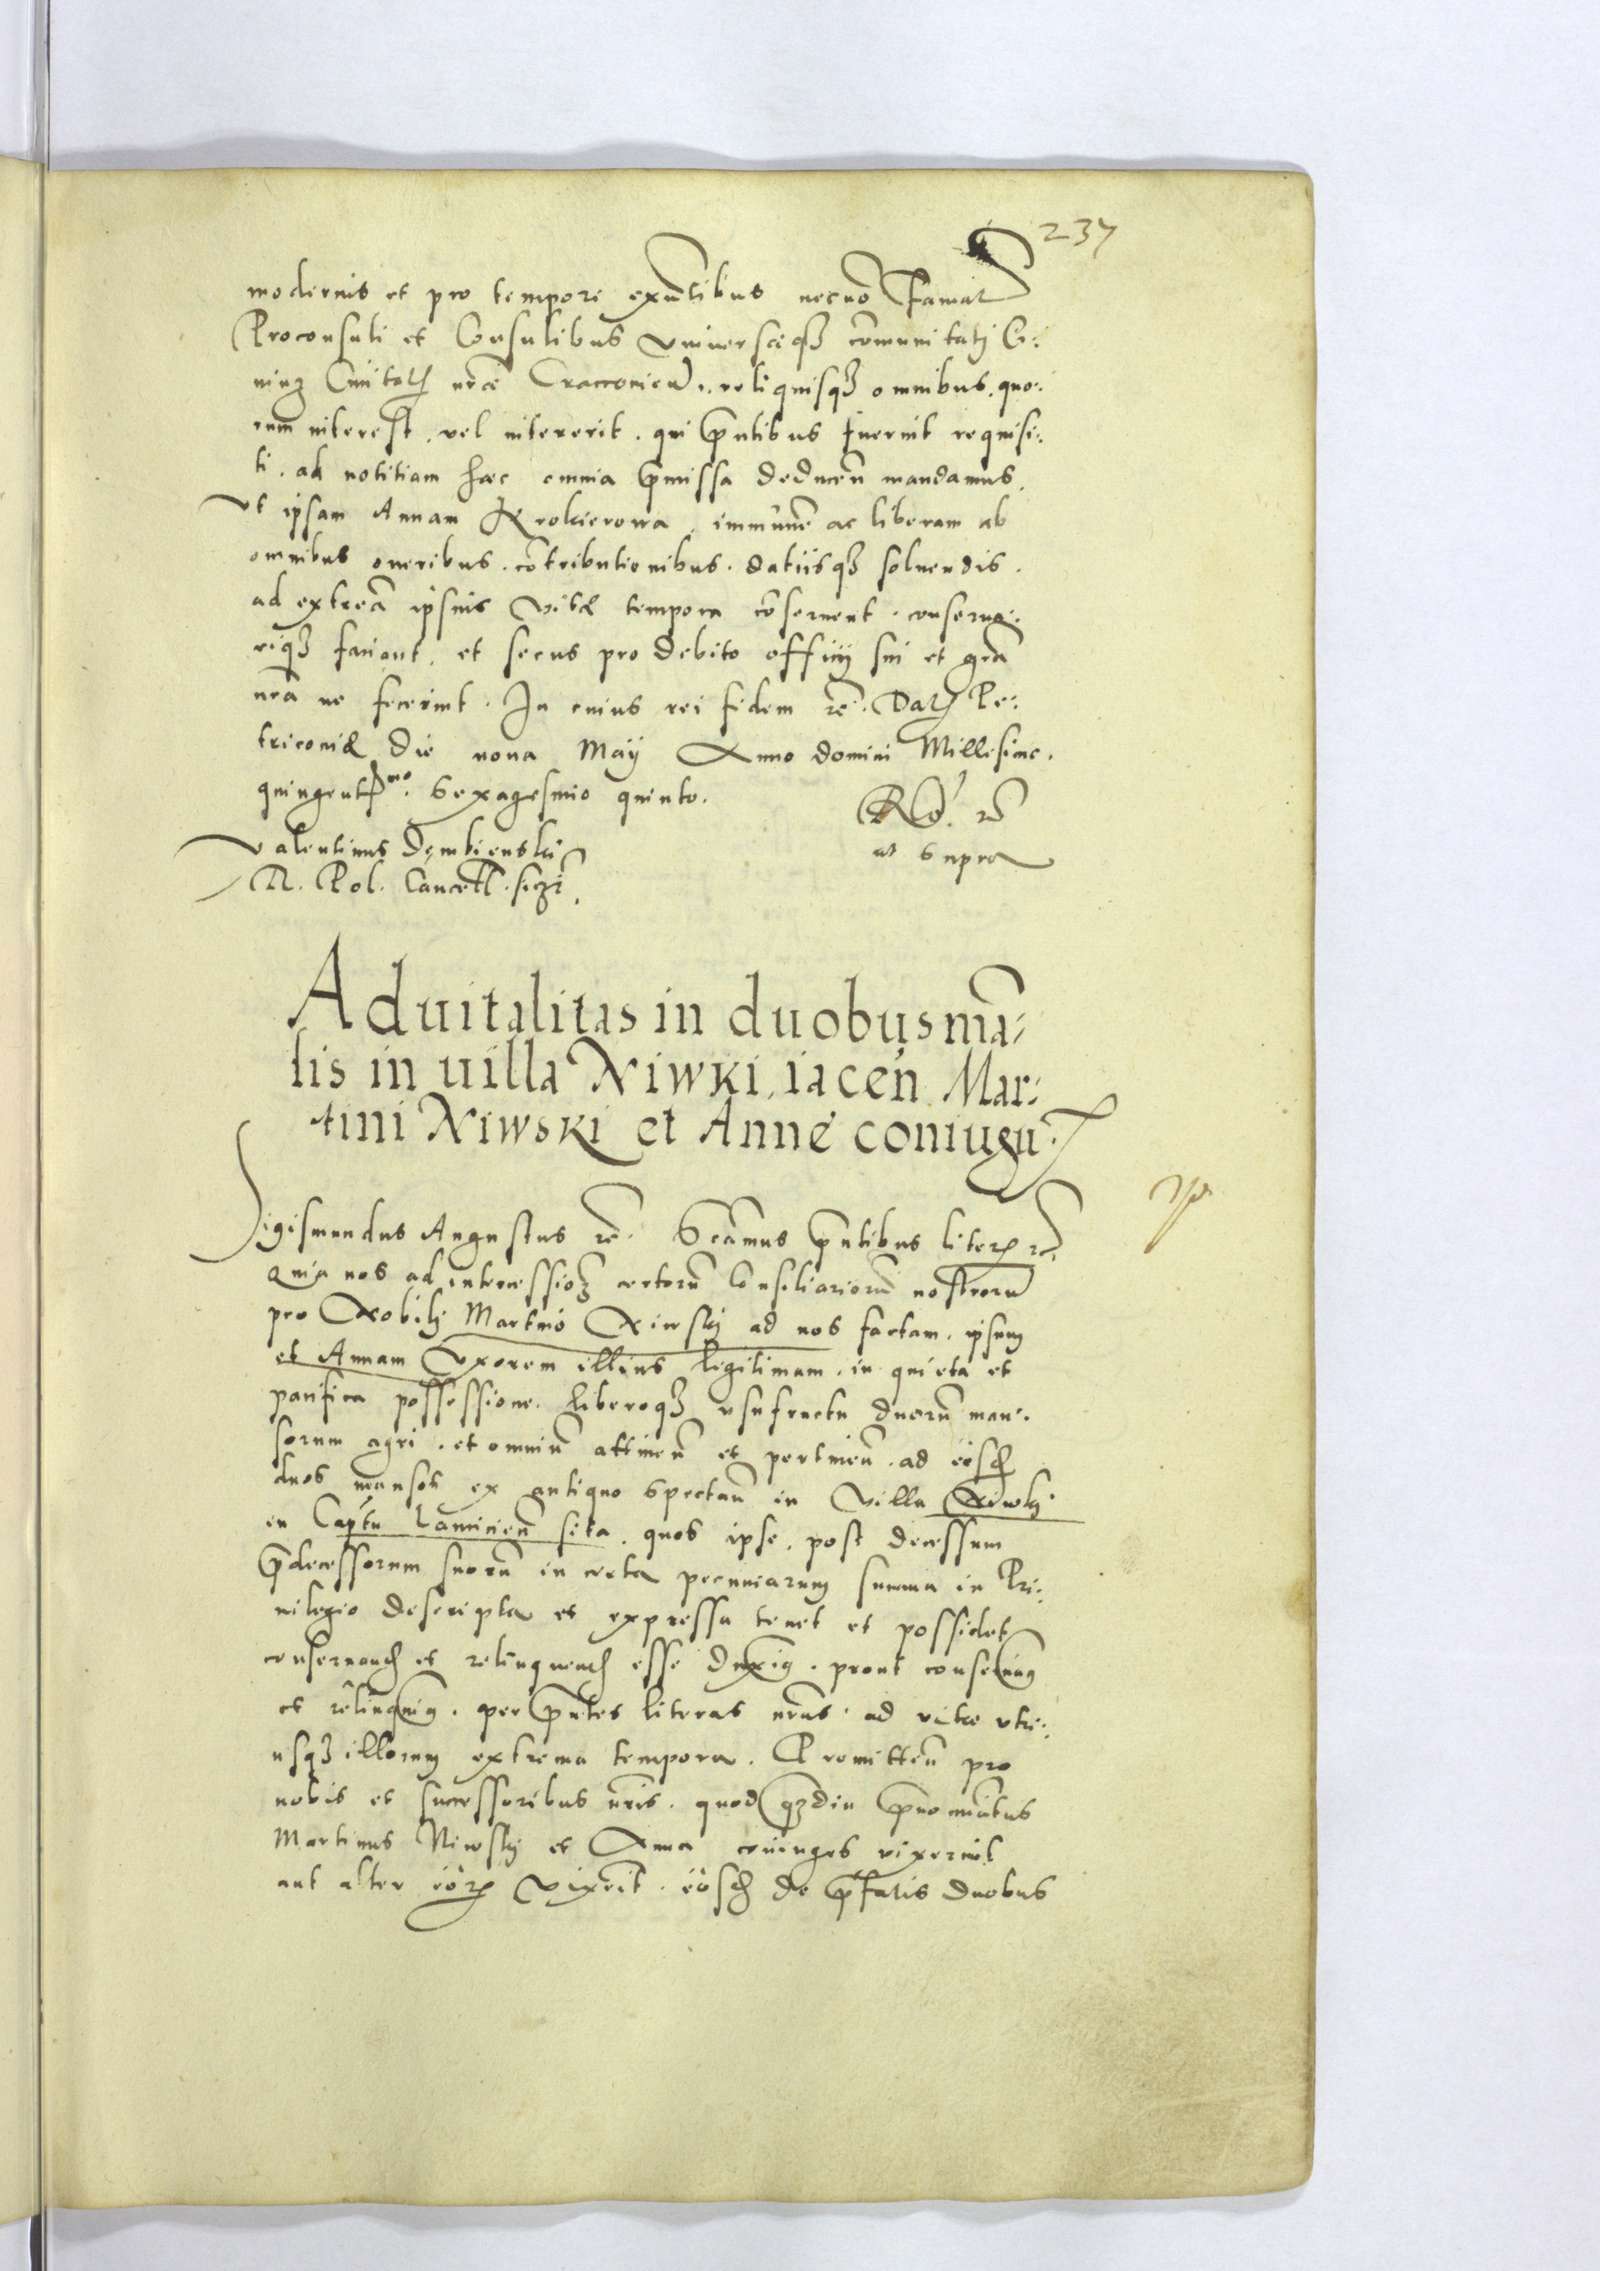 237
modernis et pro tempore exn̄tibus necnō Famat
Proconsuli et Consulibus vniuersæq₃ cōmunitatj Ci:
uiuz Ciuitat nr̄æ Cracouien̄. reliquisq₃ omnibus. quo:
rum interest. vel intererit. qui p̄ntibus fuerint requisi:
ti. ad notitiam hæc omnia p̄missa deducen̄ mandamus.
vt ipsam Annam Krokierowa, immunē ac liberam ab
omnibus oneribus. cōtributionibus. datijsq₃ soluendis.
ad extrēā ipsius vitæ tempora cōseruent. conserua:
riq₃ faciant. et secus pro debito officij sui et gr̄a
nr̄a ne fecerint. In cuius rei fidem rē. Dat Pe:
tricouiæ die nona Maij Anno domini Millesimo.
quingentmo. Sexagesimo quinto.
Rlō. rō
ut supra
Valentinus Dembienski
R. Pol. Cancell. sszt.
Aduitalitas in duobus mā:
lis in uilla Niwki, iacen̄ Mar:
tini Niwski et Anne coniugū.
Sigismundus Augustus rē. Scāmus p̄ntibus literꝝ rē.
Quia nos ad intercessioꝫ certorū Consiliariorū nostrorū
pro Nobilj Martinō Niwskj ad nos factam. ipsum
et Annam Vxorem illius legitimam. in quieta et
pacifica possessione. liberoq₃ vsufructu duorū man:
sorum agri. et omniū attinen̄ et pertinen̄. ad eosd
duos mansos ex antiquo spectan̄ in Villa Niwkj.
in Cap̄tu Lanicien̄ sita. quos ipse. post decessum
p̄decessorum suorū in certa pecuniarum summa in Pri:
uilegio descripta et expressa tenet et possidet
conseruand et relinquend esse duxiꝰ. prout conseruaꝰ
et relinquiꝰ. per p̄ntes literas nr̄as. ad vitæ vtri:
usq₃ illorum extrema tempora. Promitten̄ pro
nobis et successoribus nr̄is. quod q₃diu p̄nominatus
Martinus Niwskj et Anna coniuges vixerint
aut alter eōꝝ vixerit. eosd de p̄fatis duobus